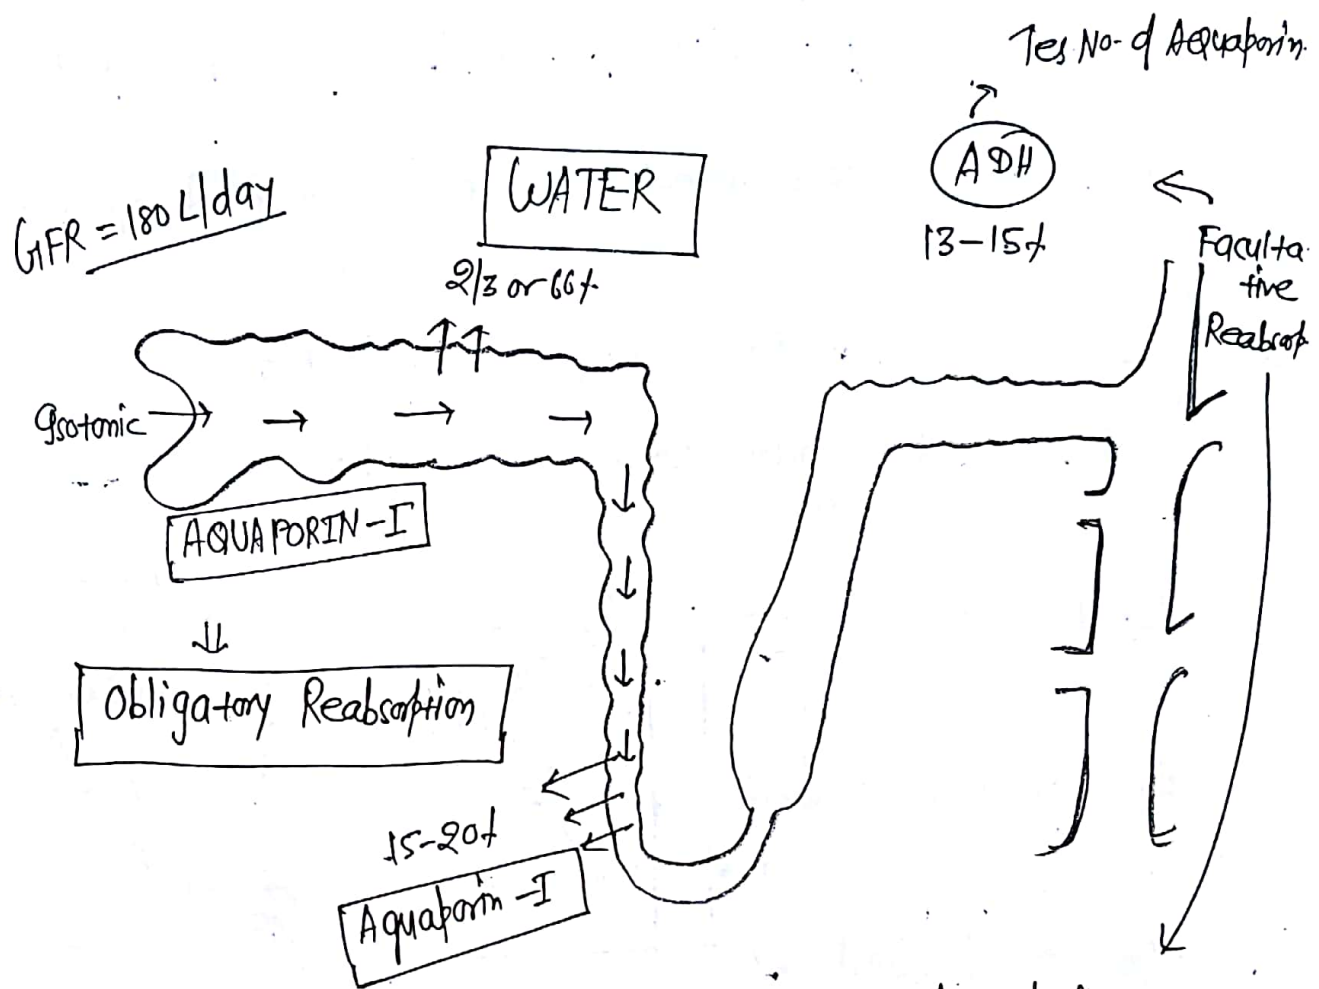 ↑es No. of Aquaporin
ADH
WATER
GFR = 180 L/day
13-15%
Faculta
tive
Reabsorp
2/3 or 66%
Isotonic
AQUAPORIN-I
Obligatory Reabsorption
15-20%
Aquaporin-I